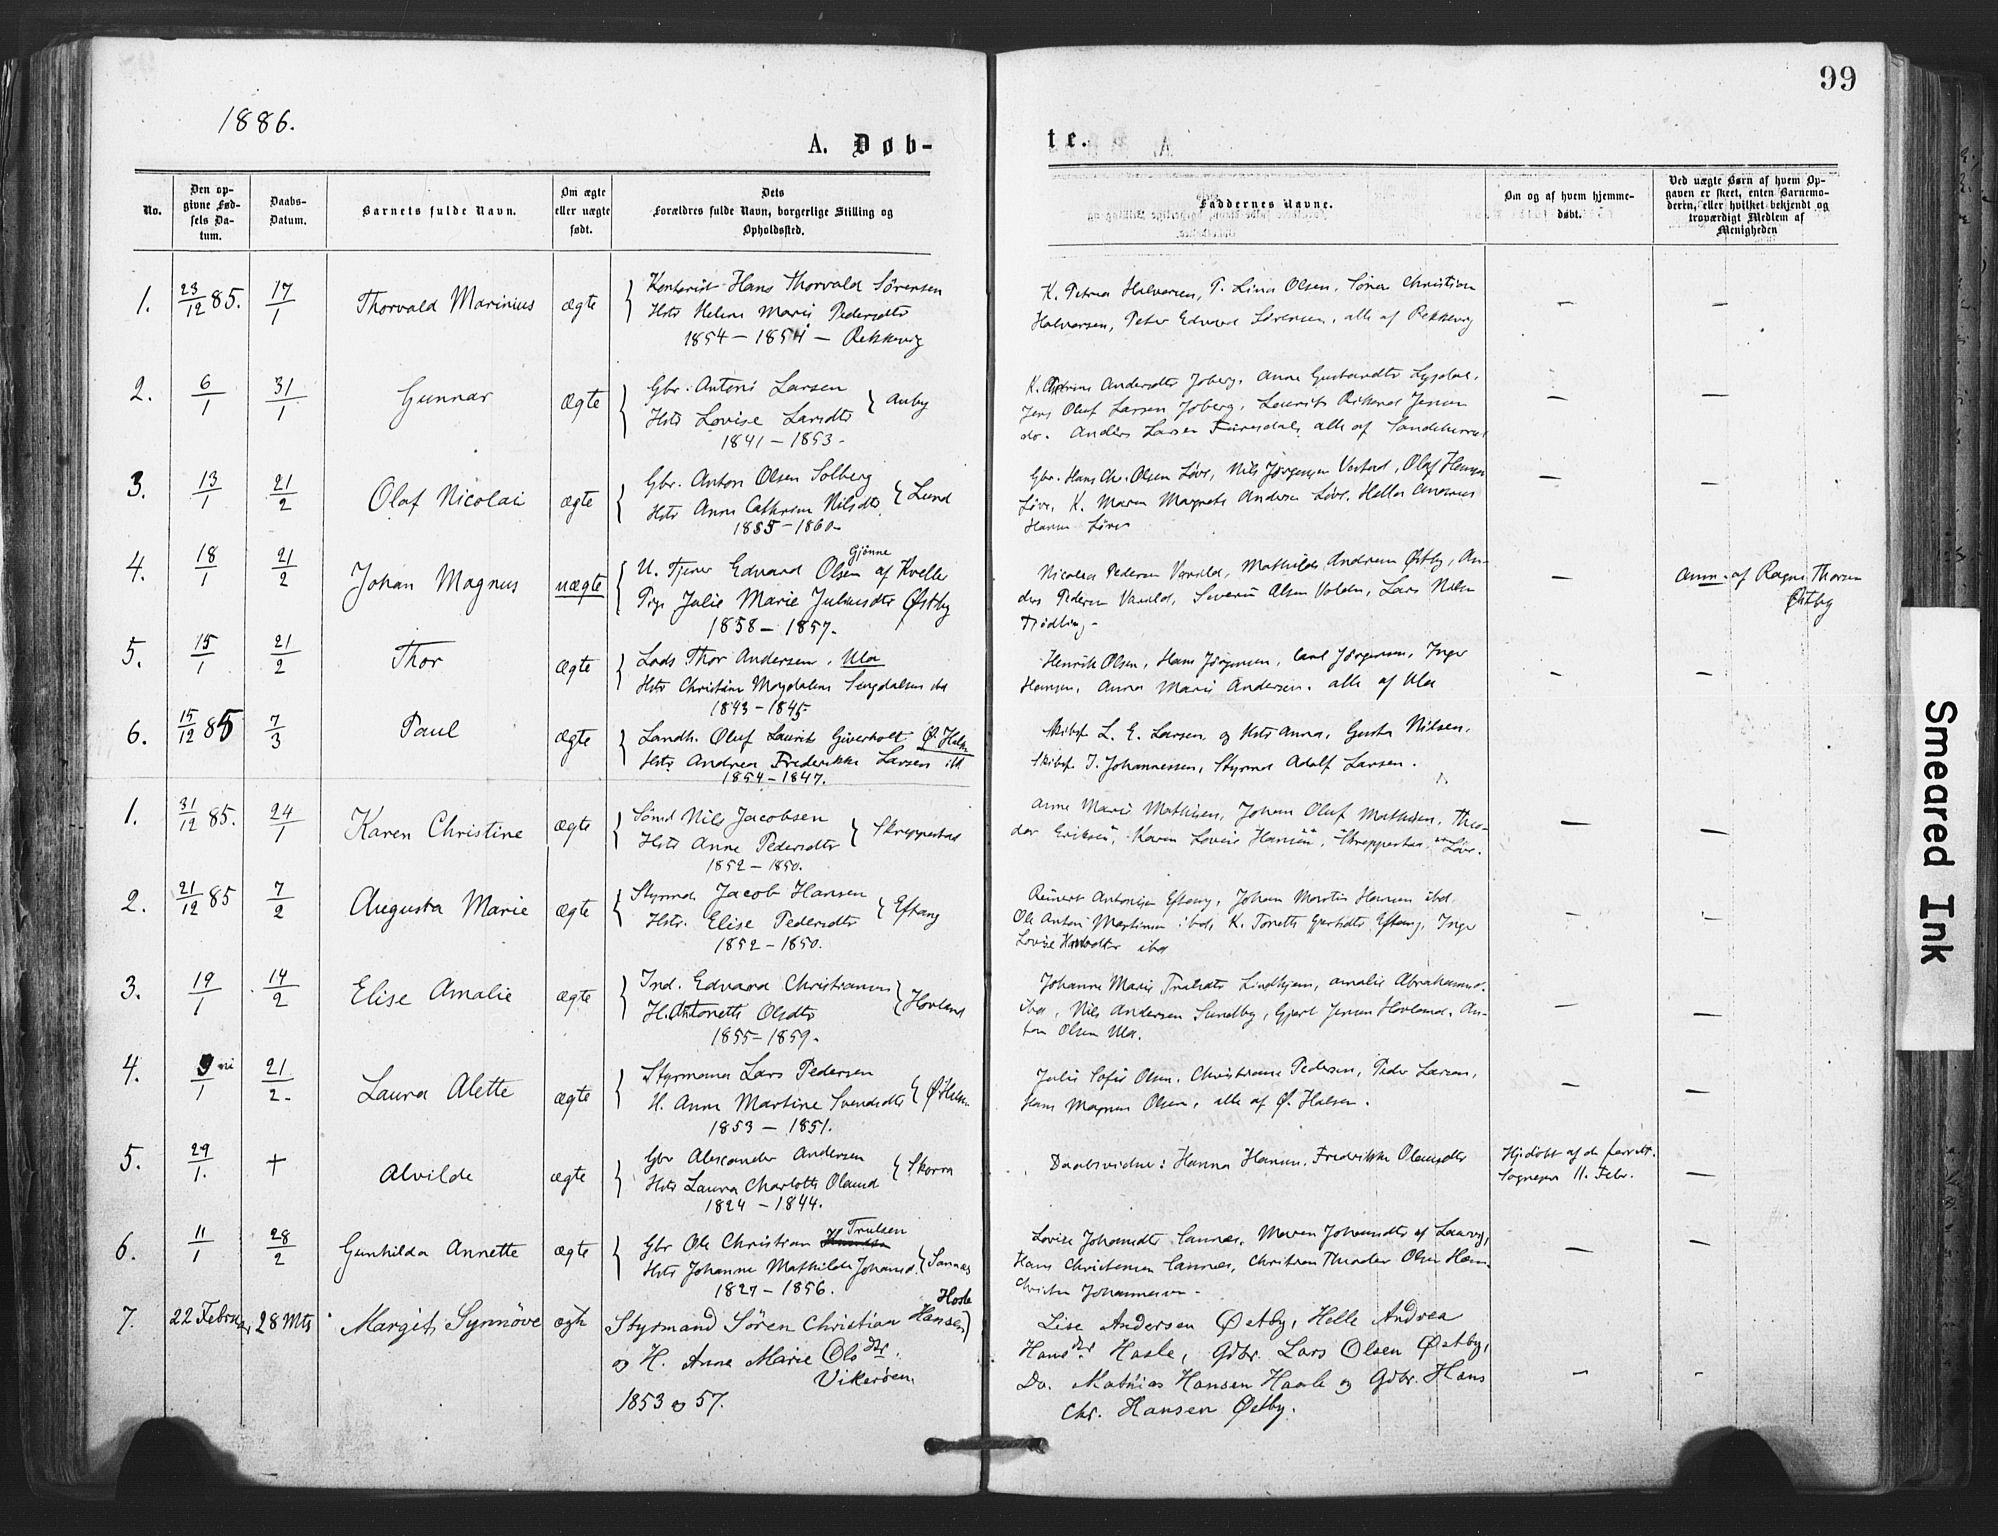 99
1886.
A. Døb-
te.
No.
Den op-
givne Fød-
sels Da-
tum.
Daabs-
Datum.
Barnets fulde Navn.
Om ægte
eller uægte
født.
Dets
Forældres fulde Navn, borgerlige Stilling og
Opholdssted.
Faddernes Navne.
Om og af hvem hjemme-
døbt.
Ved uægte Børn af hvem Op-
gaven er skeet, enten Barnemo-
deren, eller hvilket bekjendt og
troværdigt Medlem af
Menigheden
1. 23/12 85. 17/1 Thorvald Marinius ægte
Kontorist Hans Thorvald Sørensen
Hstr Helene Marie Pedersdtr
1854 — 1854 — Rekkevig
K. Petrea Halvorsen, P. Lina Olsen, Søren Christian
Halvorsen, Peter Edvard Sørensen, alle af Rekkevig
—
—
2. 6/1 31/1 Gunnar ægte
Gbr. Antoni Larsen
Hstr Lovise Larsdtr } Auby
1841 — 1853 -
Andersdtr Joberg, Anne
Jens Oluf Larsen Joberg, Laurits Rikard Jensen
do. Anders Larsen Furesdal, alle af Sandeherred
—
—
3. 13/1 21/2 Olaf Nicolai ægte
Gbr. Anton Olsen Solberg
Hstr Anne Cathrine Nilsdtr } Lund
1855 — 1860.
Gbr. Hans Chr. Olsen Løve, Nils Jørgensen, Olaf Hansen
Løve, K. Maren Magrete Andersen Løve, Helle
Hansen Løve
—
—
4. 18/1 21/2 Johan Magnus uægte
Gjønne
U. Tjener Edvard Olsen af Kvelle
Pige Julie Marie Juliusdtr Østby
1858 — 1857.
Nicolea Pedersen Varild, Mathilde Andersen Østby, An-
ders Pedersen Varild, Severin Olsen Volden, Lars
—
Anm. af Thorsen
Østby
5. 15/1 21/2 Thor ægte
Lods Thor Andersen, Ula
Hstr Christine Magdalene ibd
1843 — 1845
Henrik Olsen, Hans Jørgensen, Carl Jørgensen, Inger
Hansen, Anna Marie Andersen. alle af Ula
—
—
6. 15/12 85 7/3 Paul ægte
Landh. Oluf Laurits Giverholt Ø. Halsen
Hstr Andrea Frederikke Larsen ibd
1854 — 1847.
Skibsf. L. E. Larsen og Hstr Anna, Gusta Nilsen,
Skibsf. J. Johannessen, Styrmd Adolf Larsen.
1. 31/12 85. 24/1 Karen Christine ægte
Sømd Nils Jacobsen
Hstr Anne Pedersdtr } Skreppestad
1852 — 1850.
Anne Marie Mathisen, Johan Oluf Mathisen, Theo-
dor Eriksen, Karen Lovise Hansen, Skreppestad
—
—
2. 21/12 85 7/2 Augusta Marie ægte
Styrmd Jacob Hansen
Hstr. Elise Pedersdtr } Eftang
1852 — 1850.
Reinert Antonisen Eftang, Johan Martin Hansen ibd.
Ole Anton Martinsen ibd, K. Tonette Eftang, Inger
Lovise ibd
—
—
3. 19/1 14/2 Elise Amalie ægte
Ind. Edvard Christiansen
H. Antonette Olsdtr } Hovland
1855 — 1859.
Johanne Marie Trulsdtr Lindhjem, Amalie Abrahamsd.
ibd, Nils Andersen Sundby, Gjert Jensen Hovland. An-
ton Olsen Ula.
—
—
4. 9 ni/1 21/2. Laura Alette ægte
Styrmand Lars Pedersen
H. Anne Martine Svendsdtr } Ø. Halsen
1853 — 1851.
Julie Sofie Olsen, Christiane Pedersen, Peder Larsen,
Hans Magnus Olsen, alle af Ø. Halsen.
—
—
5. 29/1. + Alvilde ægte
Gbr Alexander Andersen
Hstr Laura Charlotte Olausd } Skorra
1824 — 1844.
Daabsvidner: Hanna Hansen, Fredrikke Olausdtr
Hjdøbt af
Sognepr 11. Febr.
—
6. 11/1 28/2 Gunhilda Annette ægte
Gbr Ole Christian Trulsen
Hstr Johanne Mathilde Johansd. } Sannes
1827 — 1856.
Lovise Johansdtr Sannes, Maren Johansdtr af Laurvig,
Hans Christensen Sannes, Christian Olsen
Johannessen -
—
—
7. 22 Februar 28 Mts Margit Synnøve ægte
Hasle
Styrmand Søren Christian Hansen
og H. Anne Marie Olsdtr.
Vikerøen.
1853 og 57.
Lise Andersen Østby, Helle Andrea
Hansdtr Hasle, Gdbr. Lars Olsen Østby,
Do. Mathias Hansen Hasle og Gdbr. Hans
Chr. Hansen Østby.
—
-
Smeared Ink